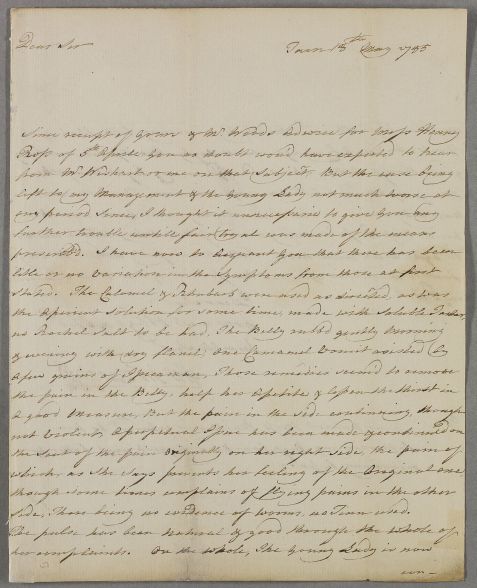 Dear Sir
Tain 13th May 1785
Since receipt of your & Mr Woods Advice for Miss Henny
Ross of 5th Aprile You no doubt would have expected to hear
from Mr Wishart or me on that Subject. But the case being
left to my Management & the Young Lady not much worse at
any period Since, I thought it unnecessaire to give You any
further trouble untill fair tryal was made of the means
prescrib'd. I have now to Acquaint You that there has been
litle or no Variation in the Symptoms from those at first
Stated. The Calomel & Rhubarb were used as directed, as was
the Aperient Solution for some time, made with Soluble Tartar,
no Rochel Salt to be had. The Belly rubb'd gently Morning
& evening with dry flanel. One Camomel Vomit assisted by
a few grains of Ipecacuan, Those remedies seem'd to remove
the pain in the Belly, help her Apetite & lessen the thirst in
a good measure, But the pain in the Side continuing, though
not Violent, A perpetual Issue has been made & continued on
the Seat of the pain Originally on her right Side, the pain of
which, as She Says prevents her feeling of the Original one
though some times complains of flying pains in the other
Side, There being no evidence of worms, no Tinn used.
The pulse has been natural & good through the whole of
her complaints. On the whole, The Young Lady is now